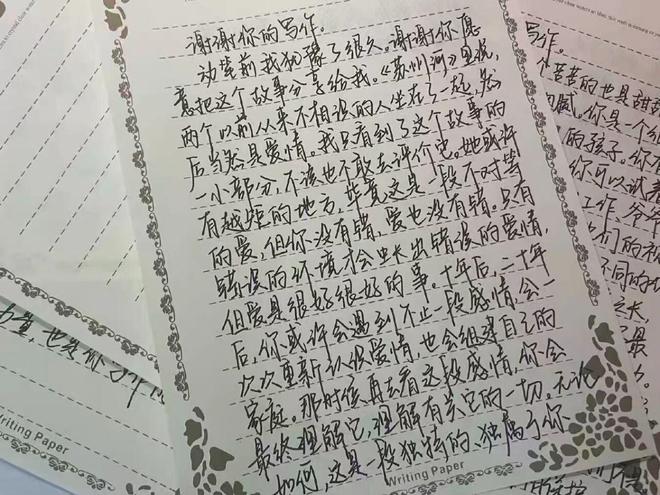 谢谢你的写作。
动笔前我犹豫了很久。谢谢你愿
意把这个故事分享给我。《苏州河》里说,
两个以前从来不相识的人坐在了一起,然
后当然是爱情。我只看到了这个故事的
一小部分,不该也不敢去评价它。她或许
有越矩的地方,毕竟这是一段不对等
的爱,但你没有错,爱也没有错。只有
错误的环境才会生长出错误的爱情,
但爱是很好很好的事。十年后,二十年
后,你或许会遇到不止一段感情,会一
次次重新认识爱情,也会组建自己的
家庭。那时候再去看这段感情,你会
最终理解它,理解有关它的一切。无论
如何,这是一段独特的、独属于你
Writing Paper
写作。
个苦苦的也是甜甜
你是一个
的孩子。你
你可以试着
工作,
们的
不同的地
之长
最
Writing Paper